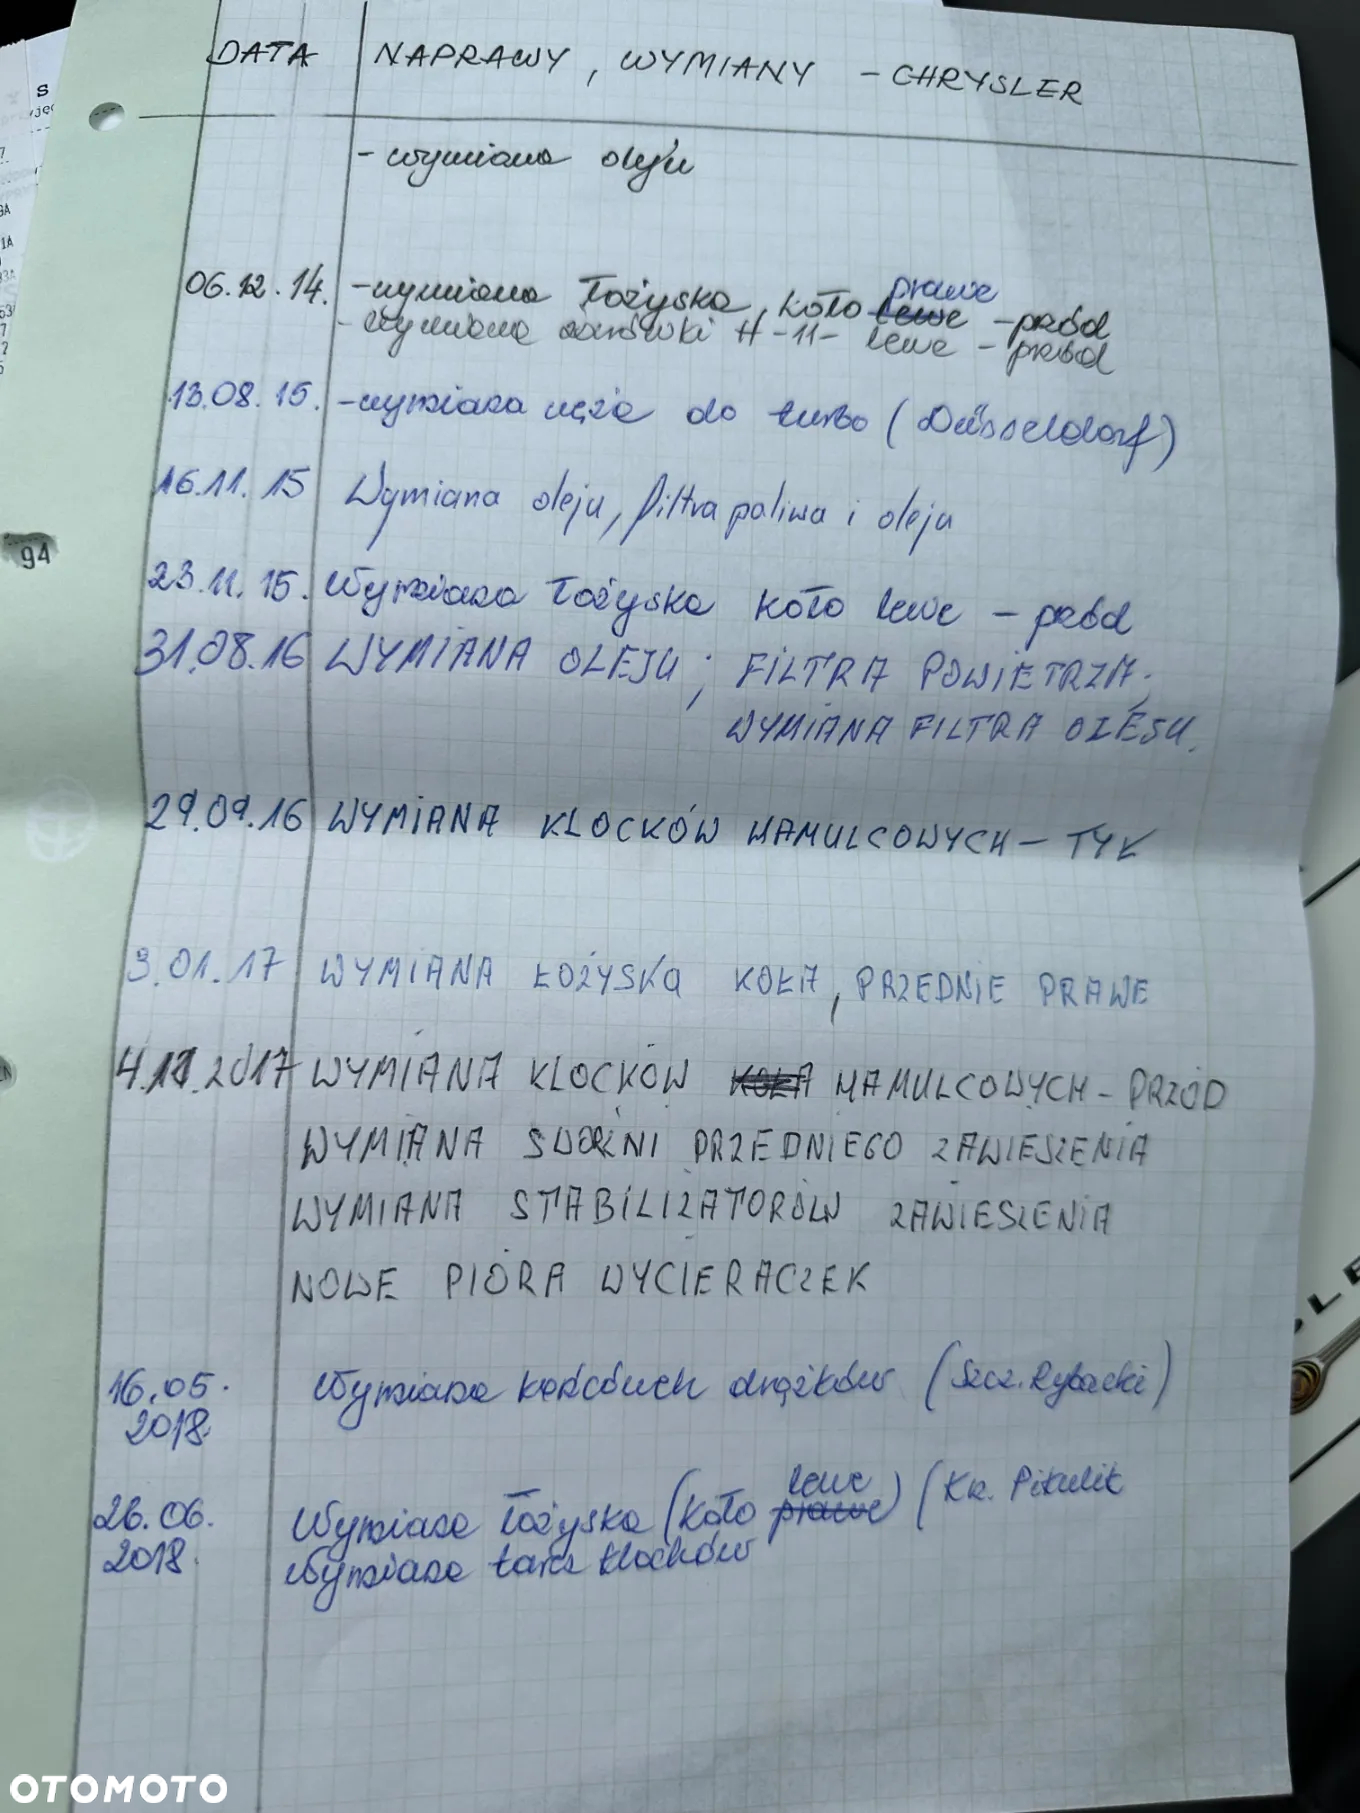 DATA NAPRAWY, WYMIANY - CHRYSLER
- wymiana oleju
prawe
06.12.14. - wymiana łożyska, koło lewe - przód
- Wymiana żarówki H-11- lewe - przód
13.08.15. - wymiana węża do turbo (Düsseldorf)
16.11.15 Wymiana oleju, filtra paliwa i oleju
94
23.11.15. Wymiana łożyska koło lewe - przód
31.08.16 WYMIANA OLEJU; FILTRA POWIETRZA;
WYMIANA FILTRA OLEJU.
29.09.16 WYMIANA KLOCKÓW HAMULCOWYCH - TYŁ
3.01.17 WYMIANA ŁOŻYSKA KOŁA, PRZEDNIE PRAWE
4.11.2017 WYMIANA KLOCKÓW KOŁA HAMULCOWYCH - PRZÓD
WYMIANA SWORZNI PRZEDNIEGO ZAWIESZENIA
WYMIANA STABILIZATORÓW ZAWIESZENIA
NOWE PIÓRA WYCIERACZEK
16.05. Wymiana końcówek drążków (Szcz. Rybacki)
2018
lewe
26.06. Wymiana łożyska (koło prawe) (Kr. Pikulik
2018. Wymiana tarcz klocków
OTOMOTO